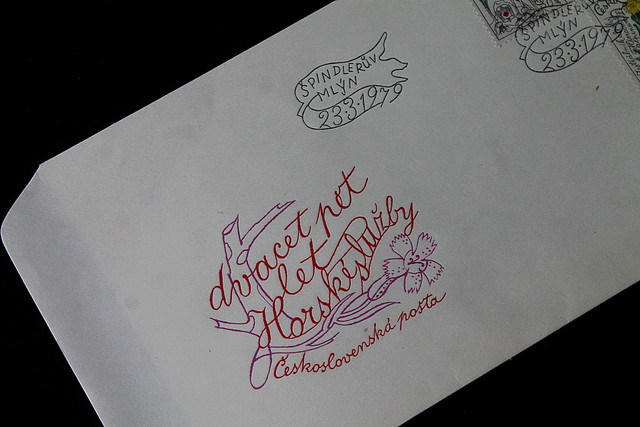 ŠPINDLERŮV
MLÝN
23.3.1979
ŠPINDLERŮV
MLÝN
23.3.1979
dvacet pět
let
Horské služby
Československá pošta